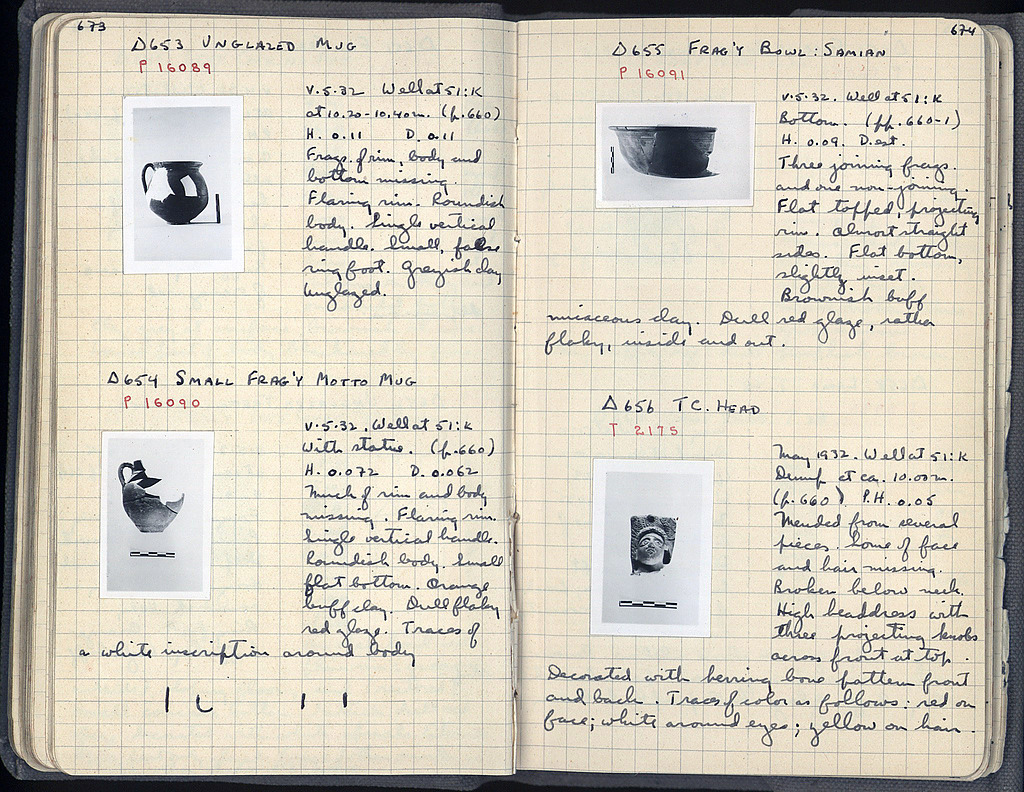 673
Δ653 UNGLAZED MUG
P 16089
V.5.32 Well at 51:K
at 10.20-10.40m. (p.660)
H. 0.11 D. 0.11
Frags. of rim, body and
bottom missing.
Flaring rim. Roundish
body. Single vertical
handle. Small, false
ring foot. Greyish clay
Unglazed.
Δ654 SMALL FRAG'Y MOTTO MUG
P 16090
V.5.32. Well at 51:K
With statue. (p.660)
H. 0.072 D. 0.062
Much of rim and body
missing. Flaring rim.
Single vertical handle.
Roundish body. Small
flat bottom. Orange
buff clay. Dull flaky
red glaze. Traces of
a white inscription around body
674
Δ655 FRAG'Y BOWL: SAMIAN
P 16091
V.5.32. Well at 51:K
Bottom. (pp.660-1)
H. 0.09. D. est.
Three joining frags.
and one non-joining.
Flat topped, projecting
rim. Almost straight
sides. Flat bottom,
slightly inset.
Brownish buff
micaceous clay. Dull red glaze, rather
flaky, inside and out.
Δ656 T.C. HEAD
T 2175
May 1932. Well at 51:K
Dump at ca. 10.00m.
(p.660) P.H. 0.05
Mended from several
pieces. Some of face
and hair missing.
Broken below neck.
High headdress with
three projecting knobs
across front at top.
Decorated with herring bone pattern front
and back. Traces of color as follows: red on
face; white around eyes; yellow on hair.